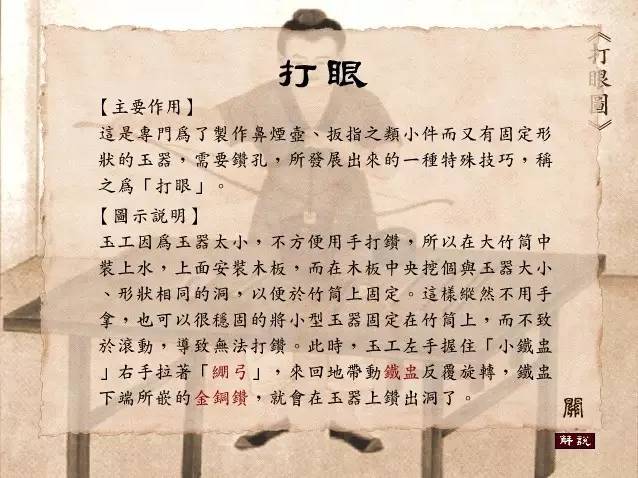 打眼
【主要作用】
這是專門為了製作鼻煙壺、扳指之類小件而又有固定形
狀的玉器，需要鑽孔，所發展出來的一種特殊技巧，稱
之為「打眼」。
【圖示說明】
玉工因為玉器太小，不方便用手打鑽，所以在大竹筒中
裝上水，上面安裝木板，而在木板中央挖個與玉器大小
、形狀相同的洞，以便於竹筒上固定。這樣縱然不用手
拿，也可以很穩固的將小型玉器固定在竹筒上，而不致
於滾動，導致無法打鑽。此時，玉工左手握住「小鐵盅
」右手拉著「綳弓」，來回地帶動鐵盅反覆旋轉，鐵盅
下端所嵌的金鋼鑽，就會在玉器上鑽出洞了。
《打眼圖》
關
解說